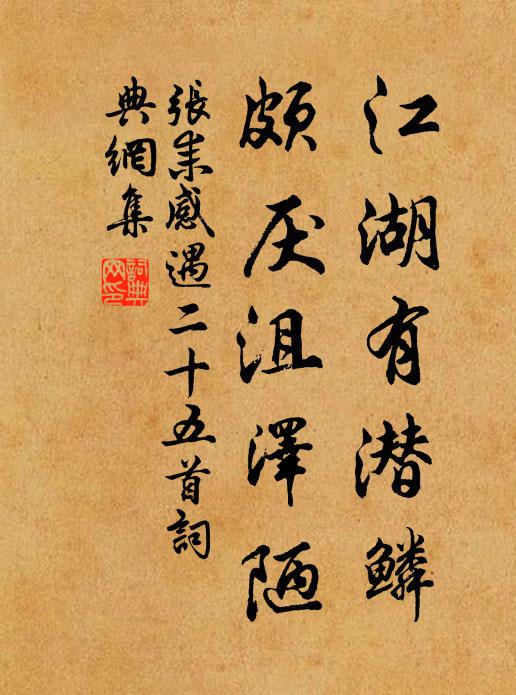 江湖有潜鳞
頗厌沮澤陋
張耒感遇二十五首詞
典網集
詞典
网印